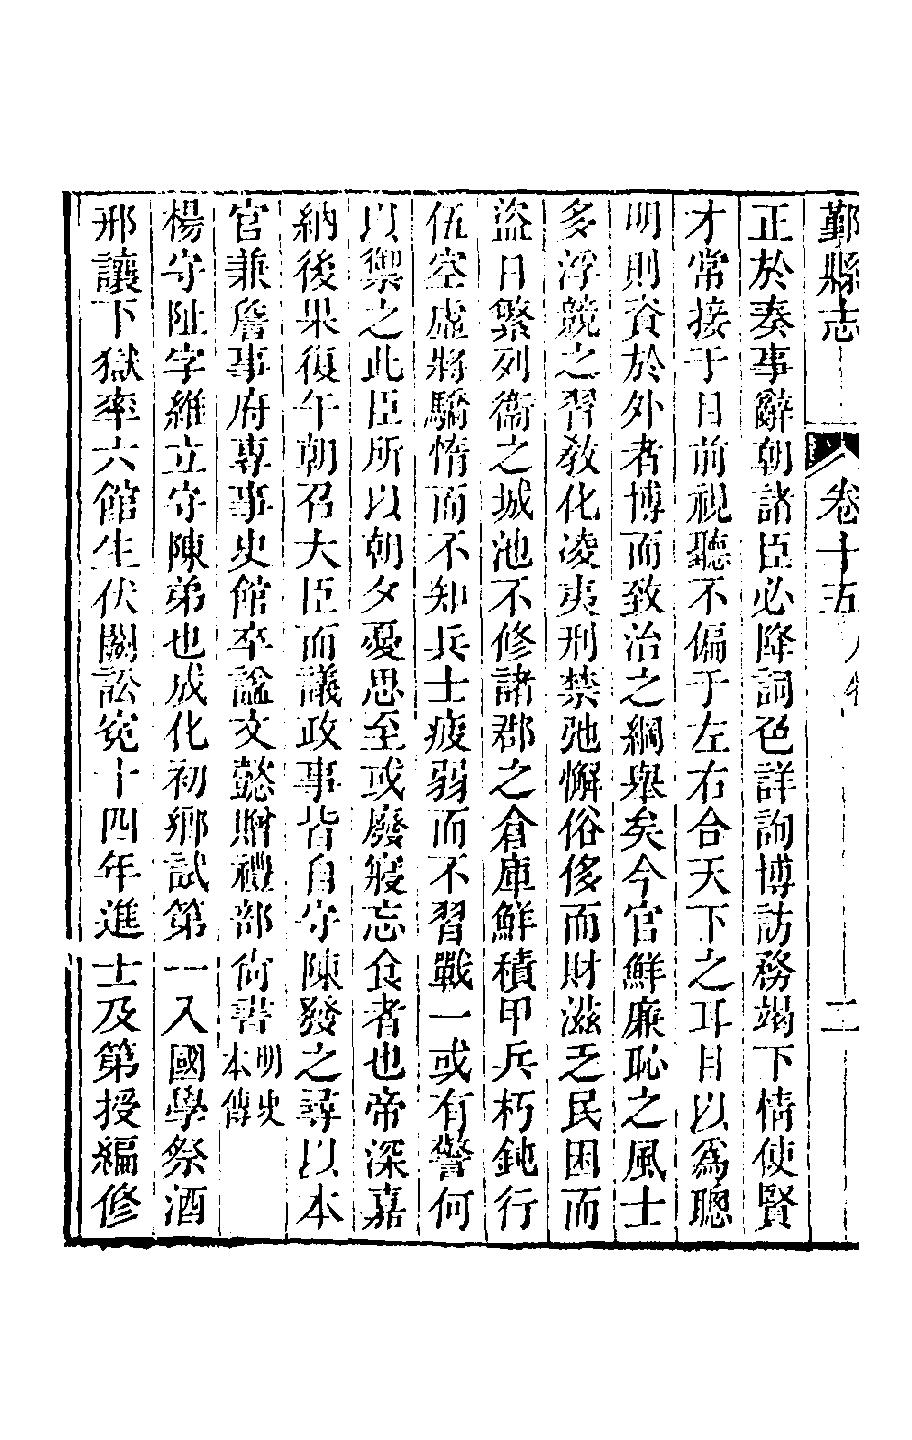 鄞縣志
卷十五
二
正於奏事辭朝諸臣必降詞色詳詢博訪務竭下情使賢
才常接于目前視聽不偏于左右合天下之耳目以爲聰
明則資於外者博而致治之綱舉矣今官鮮廉恥之風士
多浮競之習教化凌夷刑禁弛懈俗侈而財滋乏民困而
盜日繁列衞之城池不修諸郡之倉庫鮮積甲兵朽鈍行
伍空虛將驕惰而不知兵士疲弱而不習戰一或有警何
以禦之此臣所以朝夕憂思至或廢寢忘食者也帝深嘉
納後果復午朝召大臣而議政事皆自守陳發之尋以本
官兼詹事府專事史館卒諡文懿贈禮部尙書明史本傳
楊守阯字維立守陳弟也成化初鄉試第一入國學祭酒
邢讓下獄率六館生伏闕訟冤十四年進士及第授編修